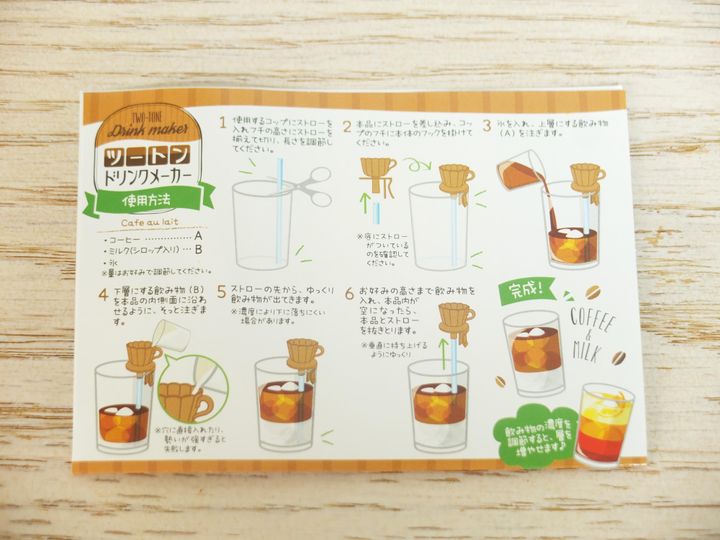 TWO-TONE
Drink maker
ツートン
ドリンクメーカー
使用方法
Cafe au lait
・コーヒー ……………… A
・ミルク(シロップ入り) … B
・氷
※量はお好みで調節してください。
1 使用するコップにストローを
入れフチの高さにストローを
揃えて切り、長さを調節して
ください。
2 本品にストローを差し込み、コップ
のフチに本体のフックを掛けて
ください。
※底にストロー
がついている
のを確認して
ください。
3 氷を入れ、上層にする飲み物
(A)を注ぎます。
4 下層にする飲み物(B)
を本品の内側面に沿わ
せるように、そっと注ぎま
す。
※穴に直接入れたり、
勢いが強すぎると
失敗します。
5 ストローの先から、ゆっくり
飲み物が出てきます。
※濃度により下に落ちにくい
場合があります。
6 お好みの高さまで飲み物を
入れ、本品内が
空になったら、
本品とストロー
を抜きとります。
※垂直に持ち上げる
ようにゆっくり
完成!
COFFEE
&
MILK
飲み物の濃度を
調節すると、層を
増やせます♪